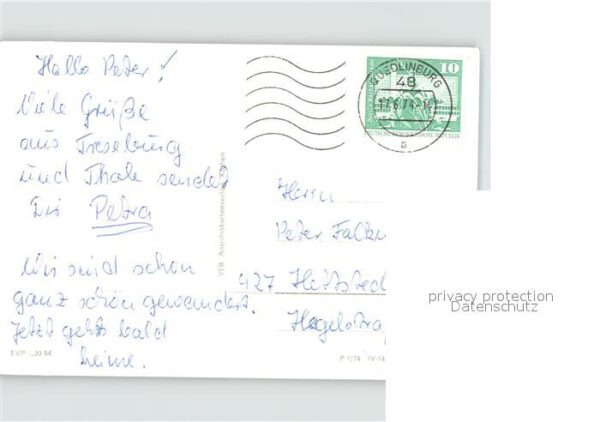 Hallo Peter!
Viele Grüße
aus Treseburg
und Thale sendet
Dir Petra
Wir sind schon
ganz schön gewandert.
Jetzt gehts bald
heime.
EVP 0,20 M
VEB Ansichtskartenverlag
QUEDLINBURG
48
17.6.74-14
a
10
DEUTSCHE DEMOKRATISCHE REPUBLIK
Herrn
Peter
427 Hettsted
Hegelstra
P 1/74 IV-14
privacy protection
Datenschutz